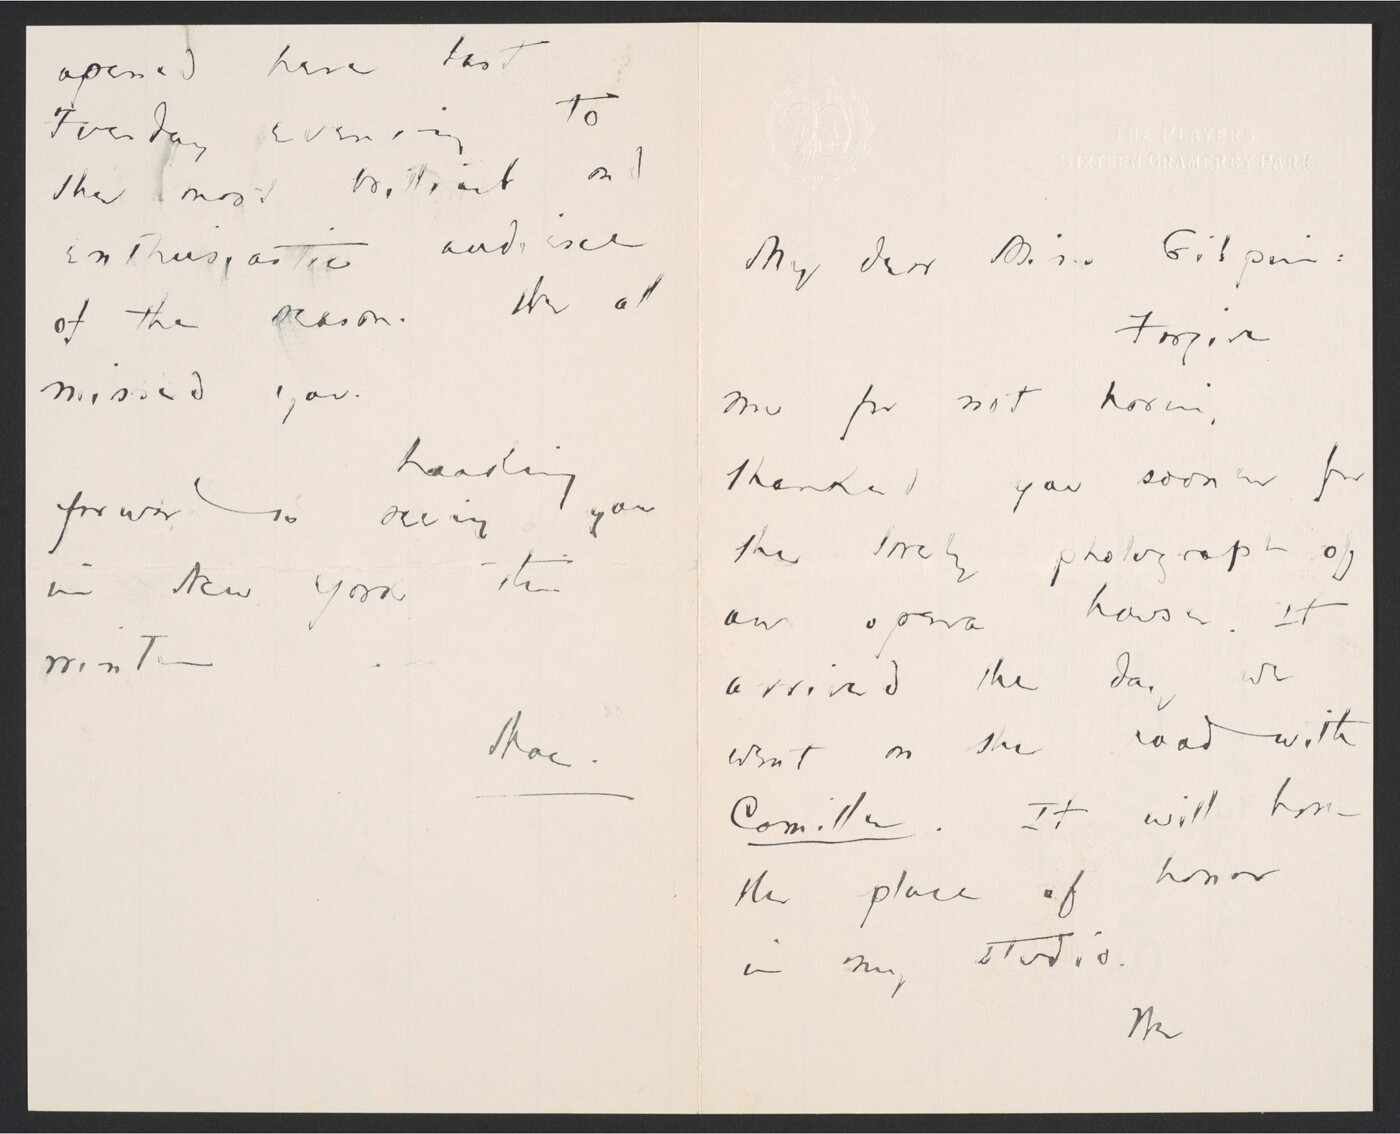 THE PLAYERS
SIXTEEN GRAMERCY PARK
My dear Miss Gilpin:
Forgive
me for not having
thanked you sooner for
the lovely photograph of
our opera house. It
arrived the day we
went on the road with
Camille. It will have
the place of honor
in my studio.
We
opened here last
Tuesday evening to
the most brilliant and
enthusiastic audience
of the season. We all
missed you.
Looking
forward to seeing you
in New York this
winter
Mac.